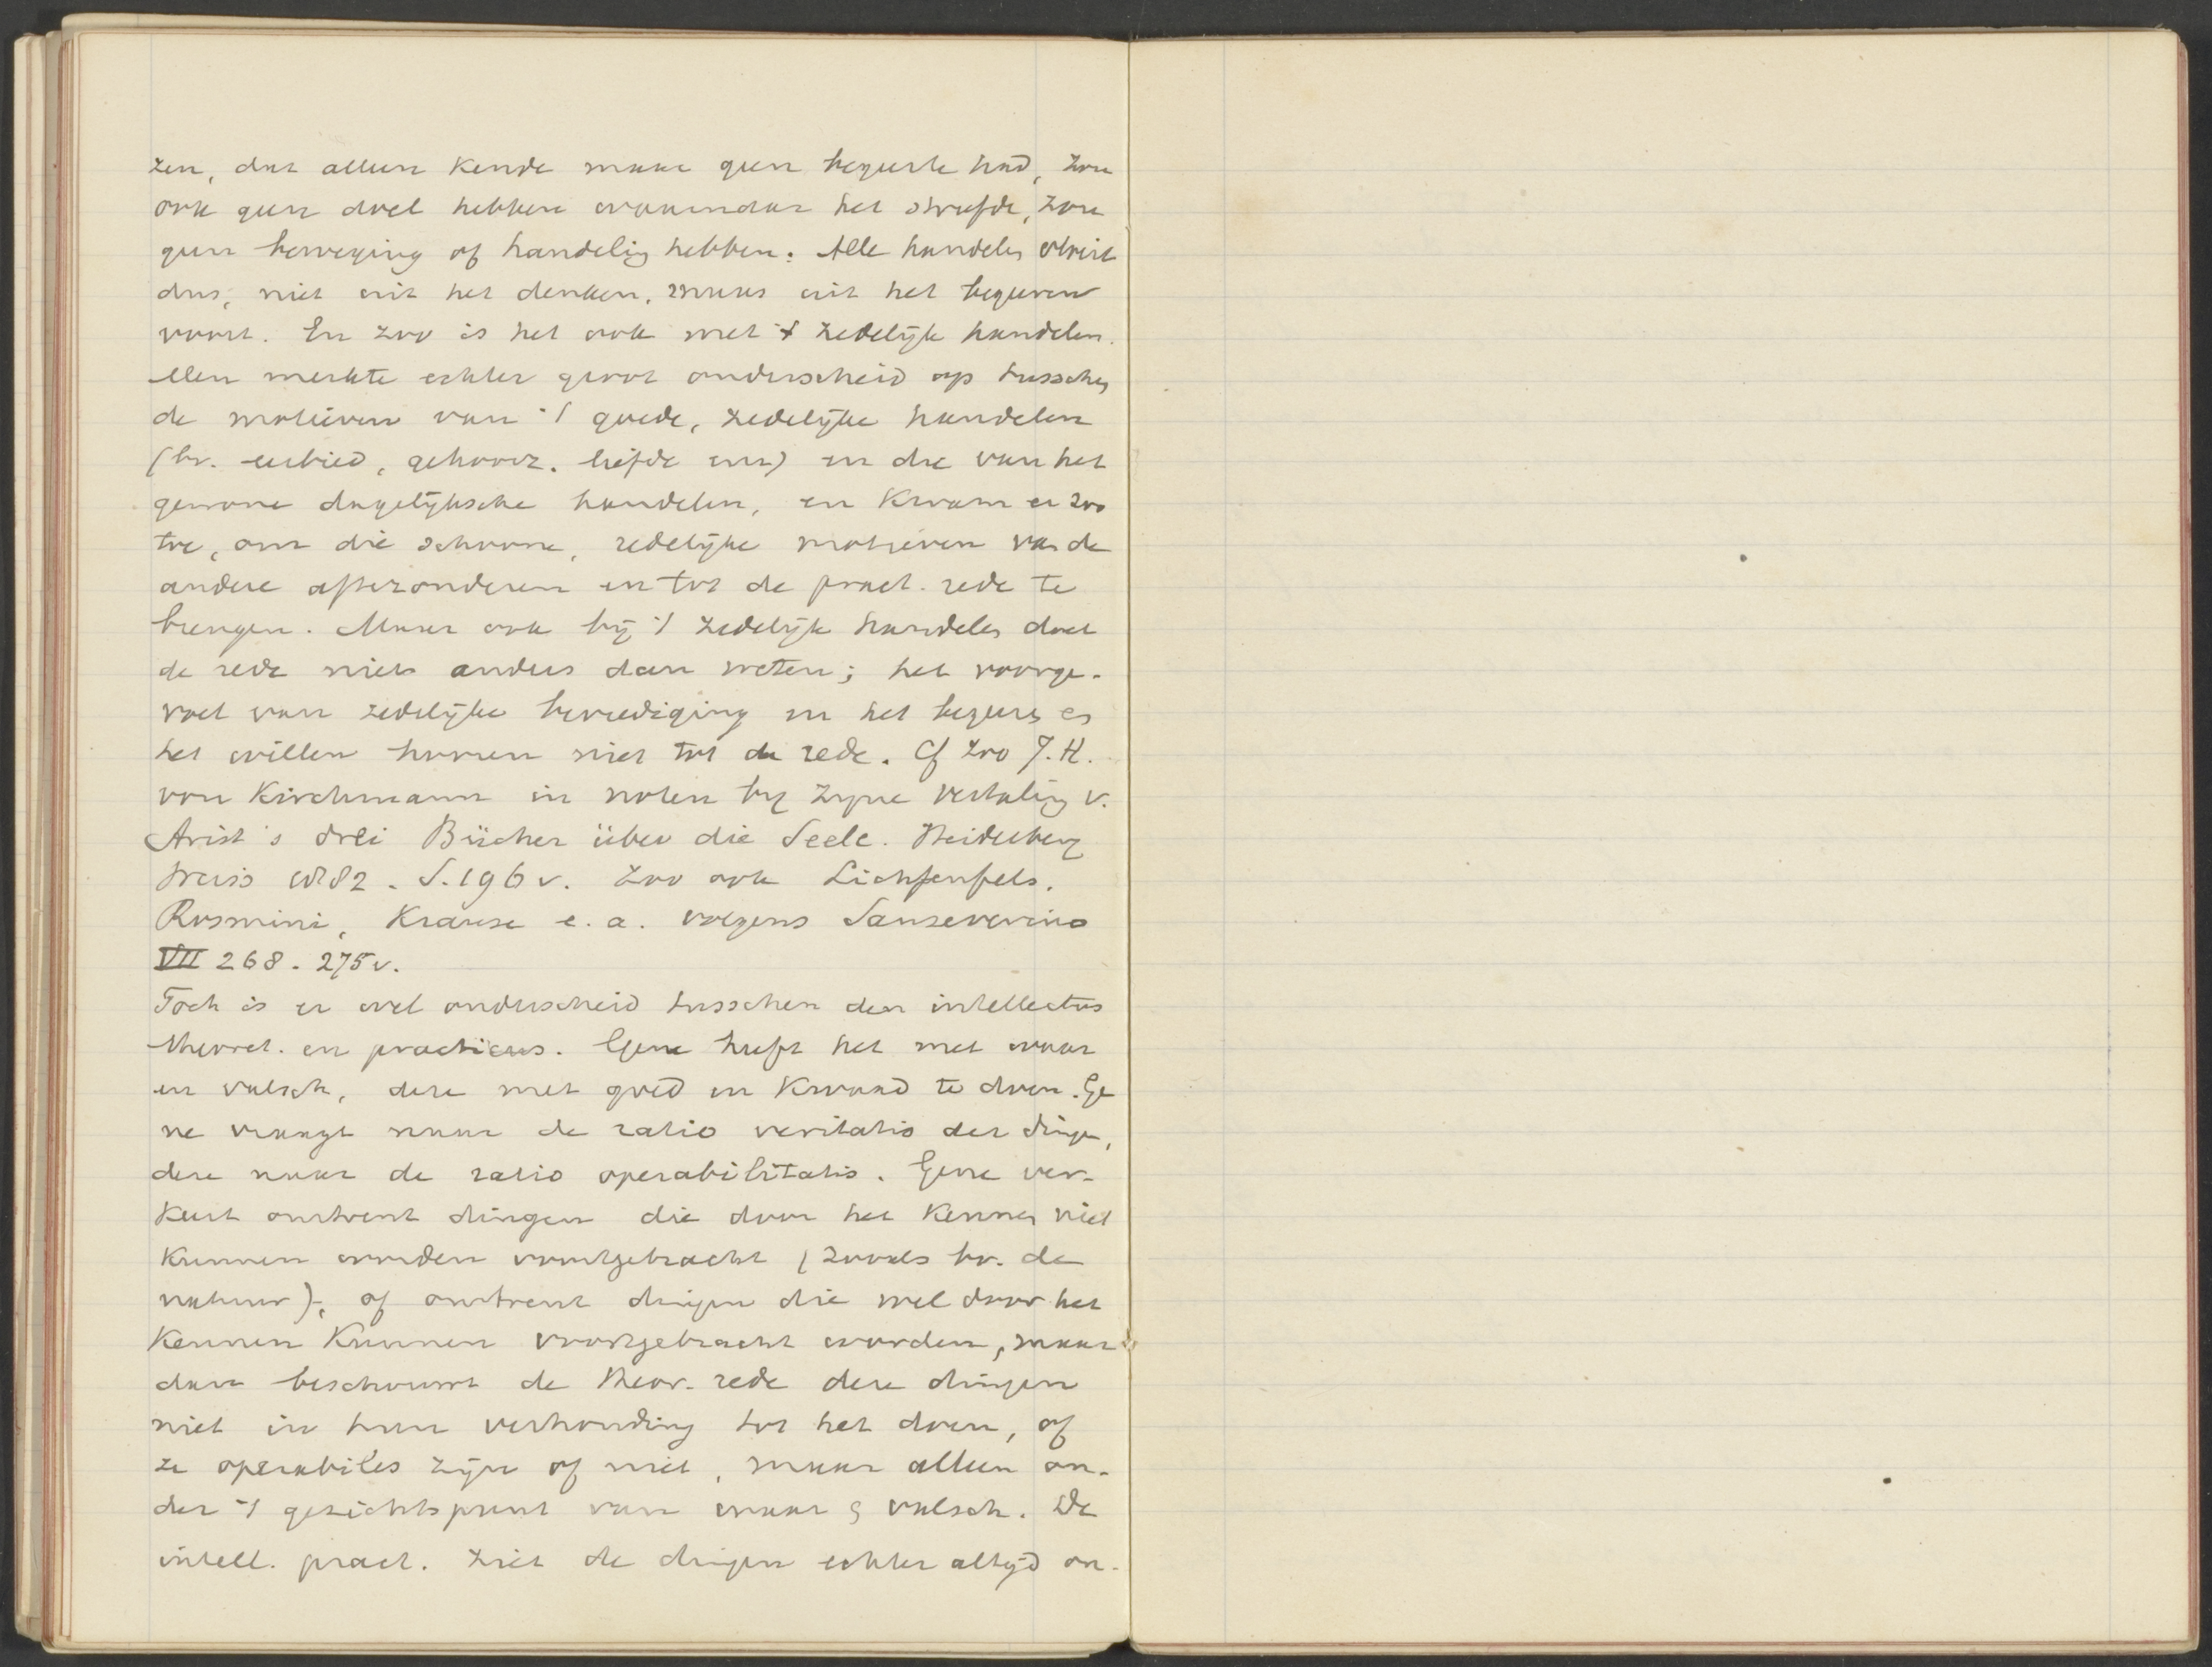 zen, dat alleen kende maar geen begeerte had, zou
ook geen doel hebben waarnaar het streefde, zou
geen beweging of handelig hebben. Alle handelen vloeit
dus, niet uit het denken, maar uit het begeeren
voort. En zoo is het ook met 't zedelijk handelen.
Men merkte echter groot onderscheid op tusschen
de motieven van 't goede, zedelijke handelen
(bv. eerbied, gehoorz. liefde enz) en die van het
gewone dagelijksche handelen, en kwam er zoo
toe, om die schoone, zedelijke motieven van de
andere aftezonderen en tot de pract. rede te
brengen. Maar ook bij 't zedelijk handelen doet
de rede niets anders dan weten; het voorge-
voel van zedelijke bevrediging en het begeeren en
het willen hooren niet tot de rede. Cf zoo J.H.
von Kirchmann in noten bij zijne vertaling v.
Arist's drei Bücher über die Seele. Heidelberg
Weiss 1882. S.196v. Zoo ook Lichtenfels,
Rosmini, Krause e.a. volgens Sanseverino
VII 268. 275v.
Toch is er wel onderscheid tusschen den intellectus
theoret. en practicus. Gene heeft het met waar
en valsch, deze met goed en kwaad te doen. Ge
ne vraagt naar de ratio veritatis der dingen,
deze naar de ratio operabilitatis. Gene ver-
keert omtrent dingen die door het kennen niet
kunnen worden voortgebracht (zooals bv. de
natuur), of omtrent dingen die wel door het
kennen kunnen voortgebracht worden, maar
dan beschouwt de theor. rede deze dingen
niet in hun verhouding tot het doen, of
ze operabiles zijn of niet, maar alleen on-
der 't gezichtspunt van waar & valsch. De
intell. pract. ziet de dingen echter altijd on-